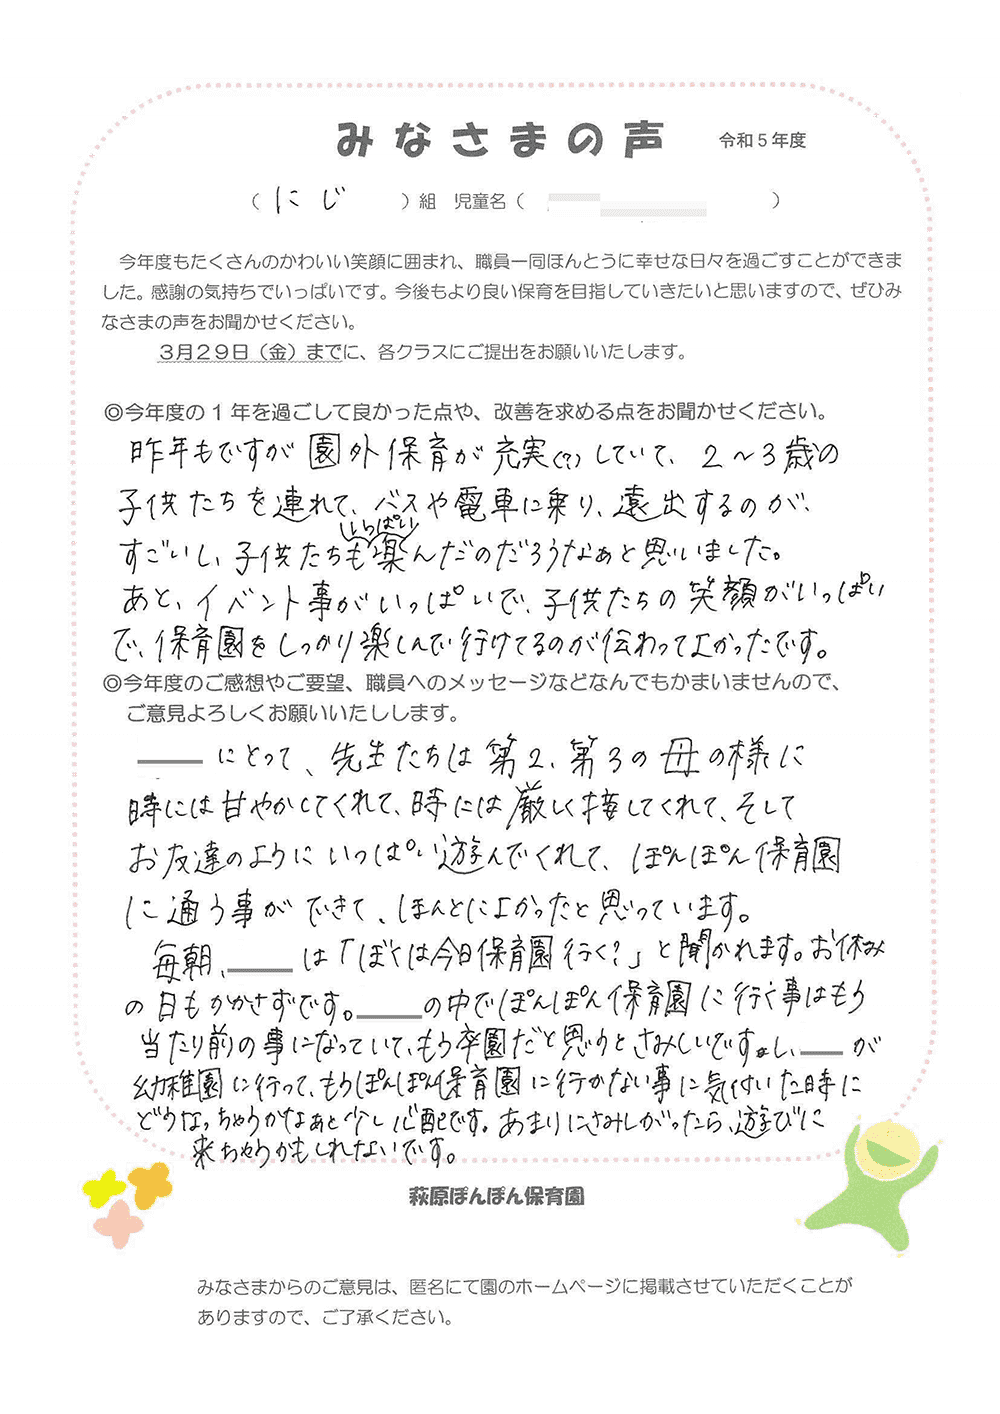 みなさまの声 令和5年度
（ にじ ）組 児童名（ ）
今年度もたくさんのかわいい笑顔に囲まれ、職員一同ほんとうに幸せな日々を過ごすことができま
した。感謝の気持ちでいっぱいです。今後もより良い保育を目指していきたいと思いますので、ぜひみ
なさまの声をお聞かせください。
3月29日（金）までに、各クラスにご提出をお願いいたします。
◎今年度の1年を過ごして良かった点や、改善を求める点をお聞かせください。
昨年もですが園外保育が充実(?)していて、2～3歳の
子供たちを連れて、バスや電車に乗り、遠出するのが、
すごいし、子供たちもいっぱい楽んだのだろうなぁと思いました。
あと、イベント事がいっぱいで、子供たちの笑顔がいっぱい
で、保育園をしっかり楽しんで行けてるのが伝わってよかったです。
◎今年度のご感想やご要望、職員へのメッセージなどなんでもかまいませんので、
ご意見よろしくお願いいたしします。
にとって、先生たちは第2、第3の母の様に
時には甘やかしてくれて、時には厳しく接してくれて、そして
お友達のようにいっぱい遊んでくれて、ぽんぽん保育園
に通う事ができて、ほんとによかったと思っています。
毎朝、は「ぼくは今日保育園行く?」と聞かれます。お休み
の日もかかさずです。の中でぽんぽん保育園に行く事はもう
当たり前の事になっていて、もう卒園だと思うとさみしいですし、が
幼稚園に行って、もうぽんぽん保育園に行かない事に気付いた時に
どうなっちゃうかなぁと少し心配です。あまりにさみしがったら、遊びに
来ちゃうかもしれないです。
萩原ぽんぽん保育園
みなさまからのご意見は、匿名にて園のホームページに掲載させていただくことが
ありますので、ご了承ください。